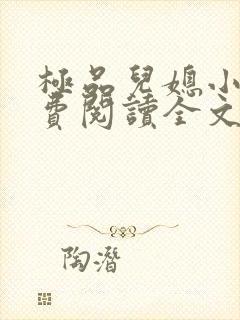 極品兒媳小
費閱讀全文
陶潛